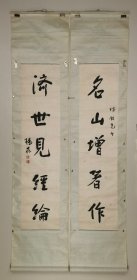 名山增著作
济世見經綸